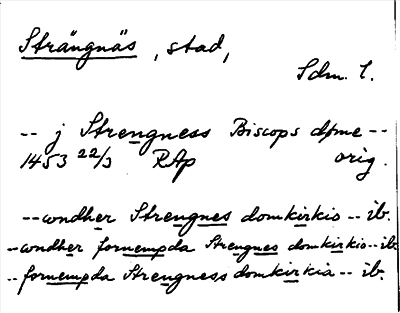 Strängnäs, stad,
Sdm. l.
-- j Strengness Biscops dʄme --
1453 22/3 RAp orig.
-- wndher Strengnes domkirkio -- ib.
-- wndher fornempda Strengnes domkirkio -- ib.
-- fornempda Strengness domkirkia -- ib.